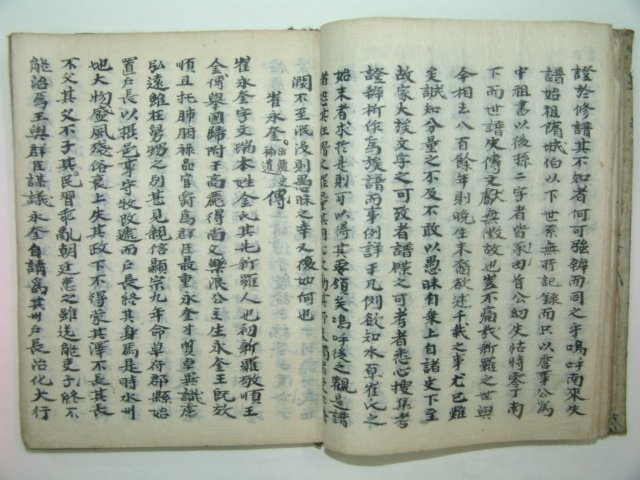 證於修譜其不知者何可强辨而同之乎嗚呼南來失
譜始祖隋城伯以下世系無所記錄而只以啓事公爲
中祖書以後孫二字者皆冢田首公幼失怙時零丁南
下而世譜失傳文獻無徵故也豈不痛哉新羅之世與
今相去八百餘年則晩生末裔欲述千載之事尤已難
矣誠知分量之不及不敢以愚昧自乗上自諸史下至
故家大族文字之可考者譜牒之可考者悉心搜集考
證辨析作爲族譜而事例詳于凡例欲知水原崔氏之
始末者求於是則可以得其要領矣嗚呼後之觀是譜
潤不至泯没則愚昧之幸又復如何也
崔永奎 出麗文補遺 傳
崔永奎字文瑞本姓金氏其先新羅人也初新羅敬順王
金傅舉國歸附于高麗得尙文樂浪公主生永奎王旣放
順且托肺腑祿品官爵爲群臣最重永奎才質卓異識慮
弘遠雖在舅甥之別甚見親信顯宗九年命革府郡縣始
置戶長以摂邑事守牧数遞而戶長終其身焉是時水州
地大物衆風殘俗喪上失其政下不得蒙其澤不長其長
不父其父不子其民習乖亂朝廷患之雖送能吏子終不
能治焉王與群臣謀議永奎自請爲其州戶長治化大行